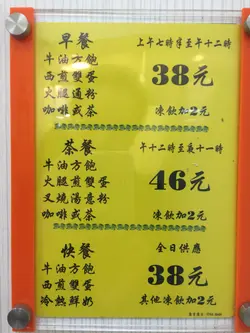 早餐
上午七時半至午十二時
牛油方飽
西煎雙蛋
火腿通粉
咖啡或茶
38元
凍飲加2元
茶餐
午十二時至晚十一時
牛油方飽
火腿煎雙蛋
叉燒湯意粉
咖啡或茶
46元
凍飲加2元
快餐
全日供應
牛油方飽
西煎雙蛋
冷熱鮮奶
38元
其他凍飲加2元